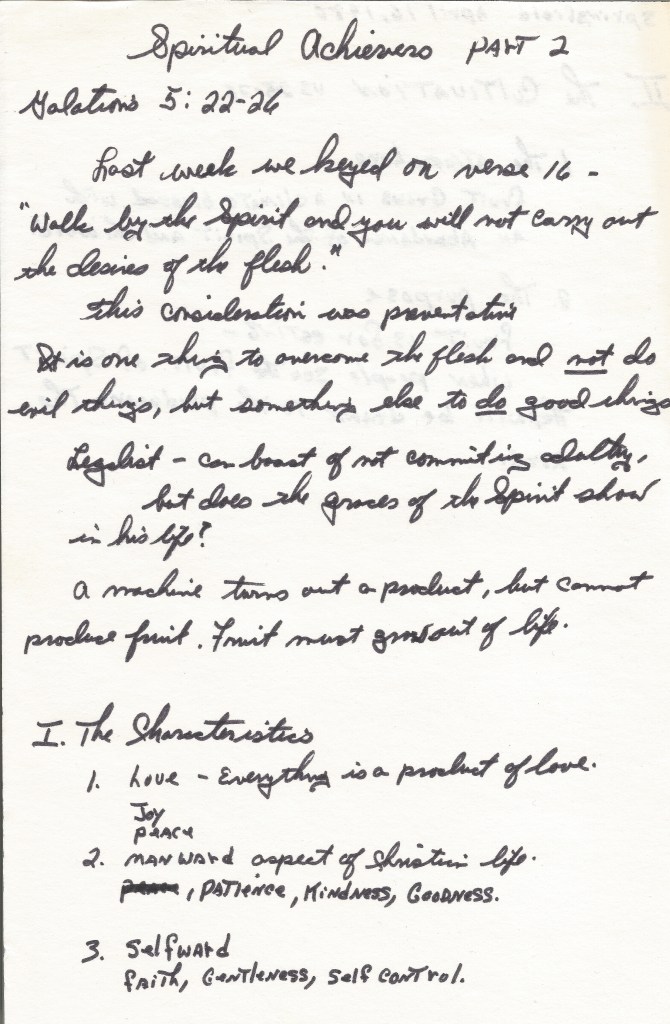 Spiritual Achievers PART 2
Galatians 5:22-26
Last week we keyed on verse 16 -
"Walk by the Spirit and you will not carry out
the desires of the flesh."
This consideration was preventative
It is one thing to overcome the flesh and not do
evil things, but something else to do good things
Legalist - can boast of not commiting adultry,
but does the graces of the Spirit show
in his life?
A machine turns out a product, but cannot
produce fruit. Fruit must grow out of life.
I. The Characteristics
1. Love - Everything is a product of love.
Joy
Peace
2. MANWARD aspect of Christian life.
, PATIENCE, KINDNESS, GOODNESS.
3. Selfward
FAITH, GENTLENESS, Self CONTROL.